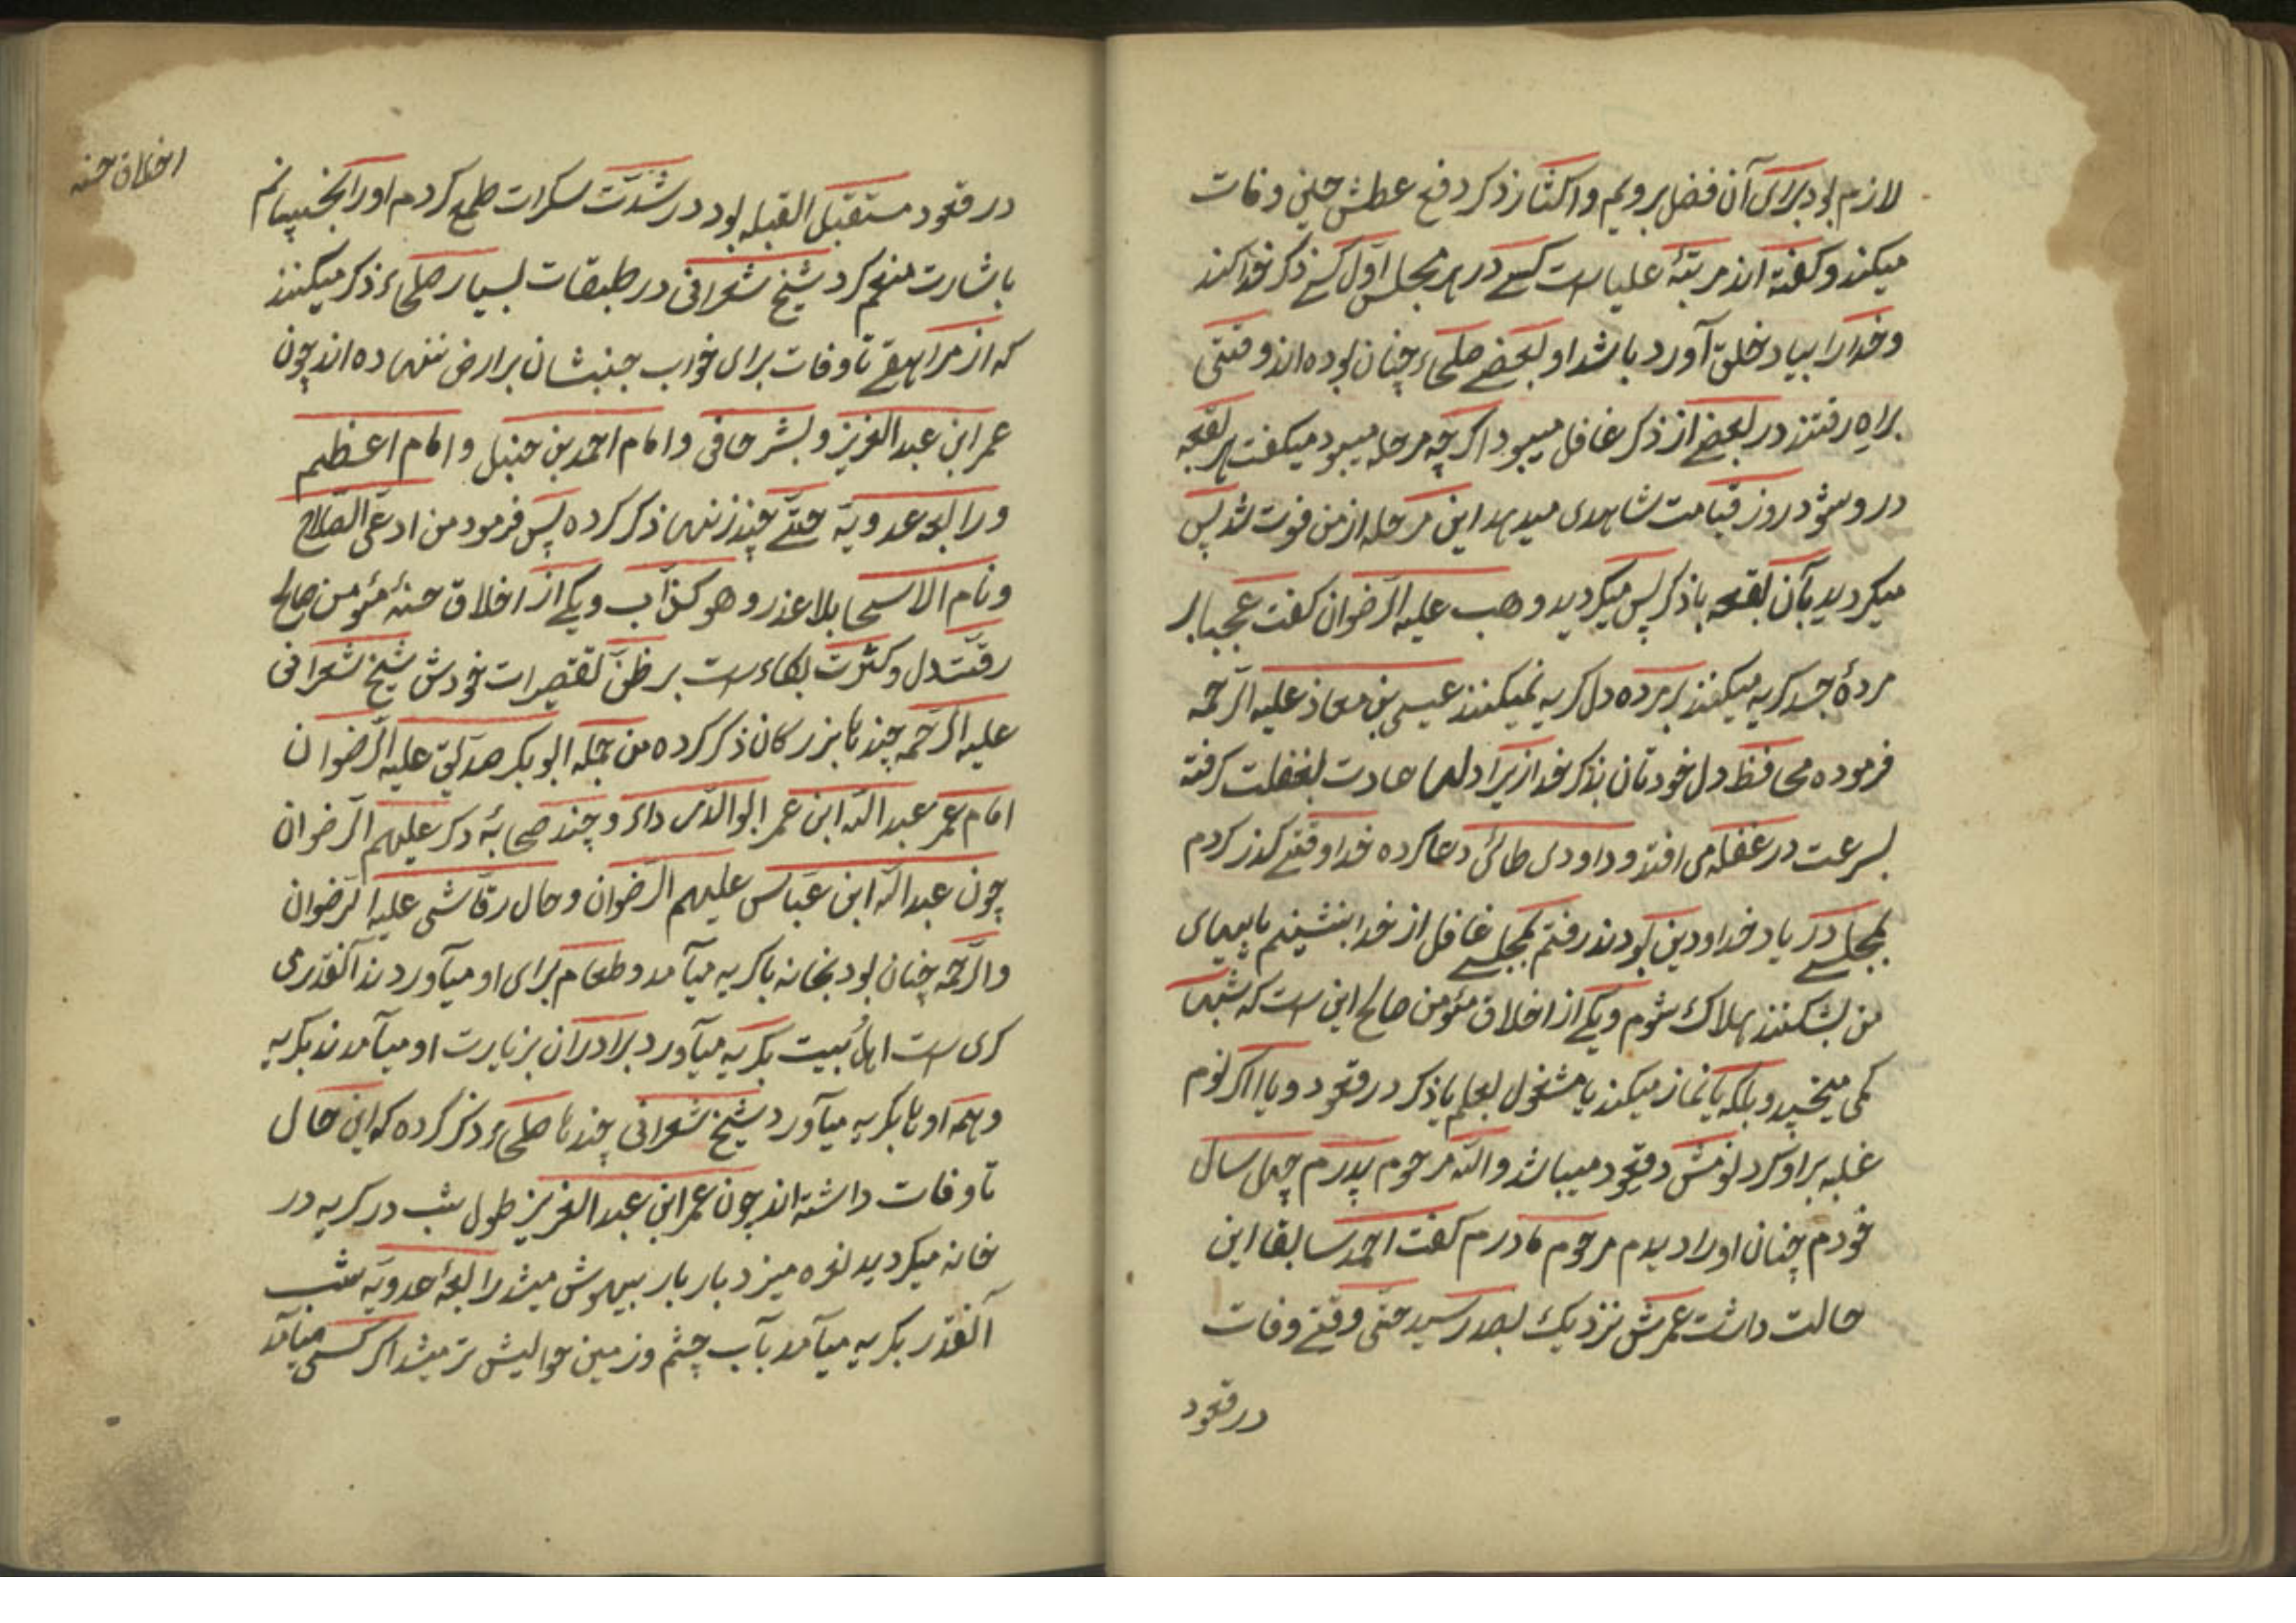 لازم بود برای آن فضل برویم و اکثار ذکر دفع عطش حین وفات
میکند و کفته اند مرتبۀ علیا است کسے در هر مجلس اول کسے ذکر خدا کند
و خدا را بیاد خلق آورد باشد او بعضے صلحاء چنان بوده اند وقتی
براه رفتند در بعضے از ذکر غافل میبود اکرچه مرحله میبود میکفت هر بقعه
در و شود روز قیامت شاهدی میدهد این مرحله از من فوت شد پس
میکردید بآن بقعه باذکر پس میکردید وهب علیه الرّضوان کفت عجبا بر
مردۀ جسد کریه میکنند بر مرده دل کریه نمیکنند عیسی بن معاذ علیه الرّحمه
فرموده محافظ دل خودتان بذکر خدا زیرا دلها عادت بغفلت کرفته
بسرعت در غفله می افتد و داود طائی دعا کرده خدا وقتے کذر کردم
بمجلسے در یاد خدا و دین بودند رفتم بمجلسے غافل از خدا بنشینم پایهای
من بشکنند هلاک شوم و یکے از اخلاق مؤمن صالح این است که شبها
کمی میخپید و بلکه یا نماز میکند یا مشغول بعلم یا ذکر در قعود و یا اکر نوم
غلبه بر او کرد نومش در قعود میباشد والله مرحوم پدرم چهل سال
خودم چنان او را دیدم مرحوم مادرم کفت احمد سابقا این
حالت داشت عمرش نزدیک بصد رسید حتی وقتے وفات
در قعود
اخلاق حسنه
در قعود مستقبل القبله بود در شدّت سکرات طمع کردم او را بخپانم
باشارت منعم کرد شیخ شعرانی در طبقات بسیار صلحاء ذکر میکنند
که از مراهقے تا وفات برای خواب جنبشان بر ارض ننهاده اند چون
عمر ابن عبد العزیز و بشر حافی و امام احمد بن حنبل و امام اعظم
و رابعه عدویّه حتّے چند زنها ذکر کرده پس فرمود من ادعی الصّلاح
و نام الاسحا بلا عذر و هو کذّاب و یکے از اخلاق حسنۀ مؤمن صالح
رقّت دل و کثرت بکاء است بر ظنّ تقصیرات خودش شیخ شعرانی
علیه الرّحمه چند تا بزرکان ذکر کرده من جمله ابو بکر صدّیق علیه الرّضوان
امام عمر عبد الله ابن عمر ابو الدّرداء و چند صحابۀ دکر علیهم الرّضوان
چون عبد الله ابن عبّاس علیهم الرّضوان و حال رقاشی علیه الرّضوان
والرّحمه چنان بود بخانه باکریه میآمد و طعام برای او میآوردند آنقدری
کری است اهل بیت بکریه میآورد برادران بزیارت او میآمدند بکریه
و همه اوها بکریه میآورد شیخ شعرانی چند تا صلحاء ذکر کرده که این حال
تا وفات داشته اند چون عمر ابن عبد العزیز طول شب در کریه در
خانه میکردید نعره میزد بار بار بیهوش میشد رابعۀ عدویّه شب
آنقدر بکریه میآمد بآب چشم و زمین حوالیش تر میشد اکر کسی میآمد